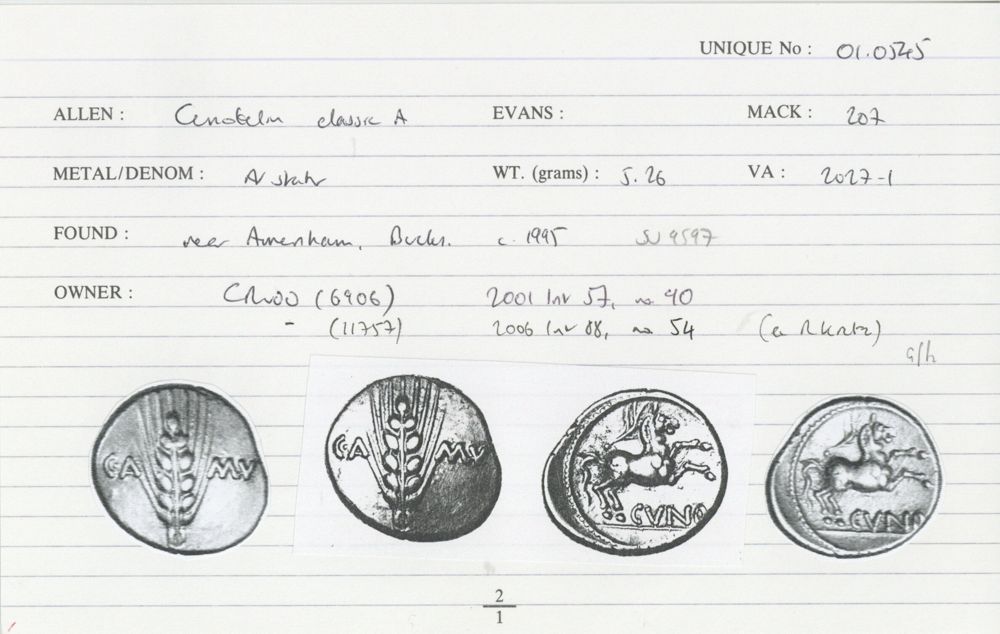 UNIQUE No : 01.0545
ALLEN : Cunobelin classic A EVANS : MACK : 207
METAL/DENOM : AV stater WT. (grams) : 5.26 VA : 2027-1
FOUND : near Amersham, Bucks. c. 1995 SU 9597
OWNER : CR (6906) 2001 Inv 57, no 40
- (11757) 2006 Inv 88, no 54 (ex
CA MV CA MV CVNO CVNO
2
1